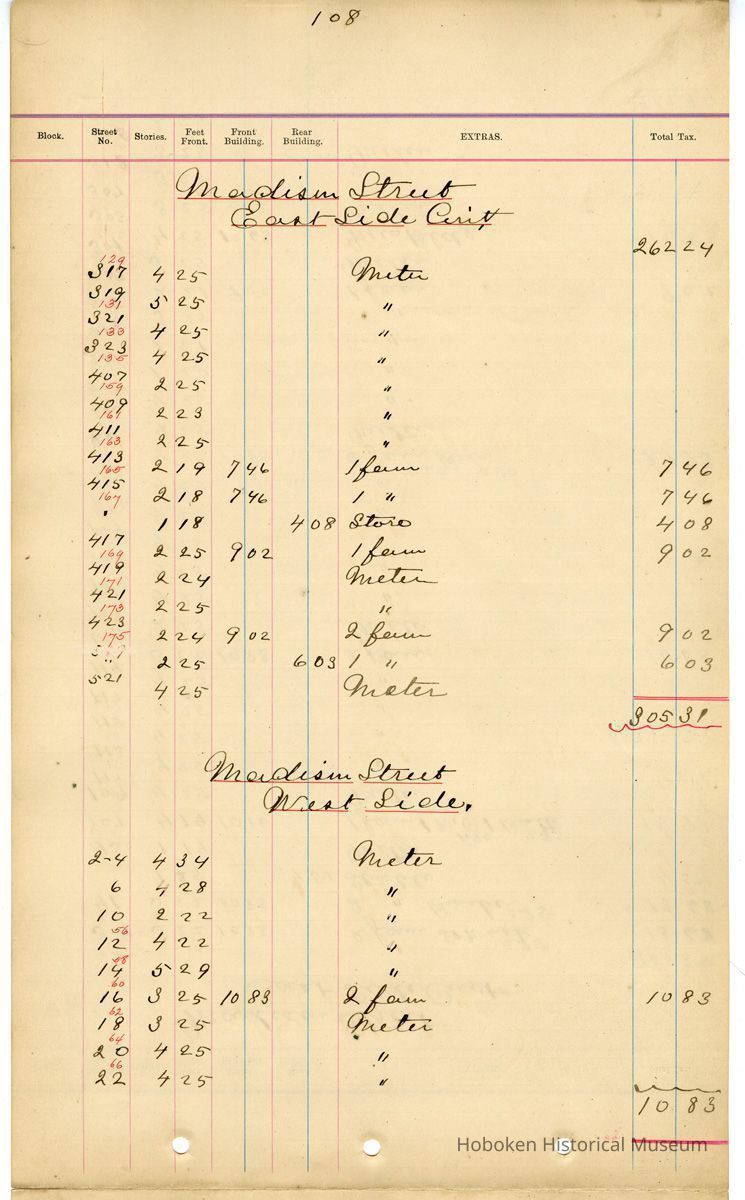 108
Block. Street No. Stories. Feet Front. Front Building. Rear Building. EXTRAS. Total Tax.
Madison Street
East Side Cont
262 24
129
317 4 25 Meter
319 5 25 "
131
321 4 25 "
133
323 4 25 "
135
407 2 25 "
159
409 2 23 "
161
411 2 25 "
163
413 2 19 7 46 1 fam 7 46
165
415 2 18 7 46 1 " 7 46
167
" 1 18 4 08 Store 4 08
417 2 25 9 02 1 fam 9 02
169
419 2 24 Meter
171
421 2 25 "
173
423 2 24 9 02 2 fam 9 02
175
" 2 25 6 03 1 " 6 03
521 4 25 Meter
305 31
Madison Street
West Side.
2-4 4 34 Meter
6 4 28 "
10 2 22 "
56
12 4 22 "
58
14 5 29 "
60
16 3 25 10 83 2 fam 10 83
62
18 3 25 Meter
64
20 4 25 "
66
22 4 25 "
10 83
Hoboken Historical Museum